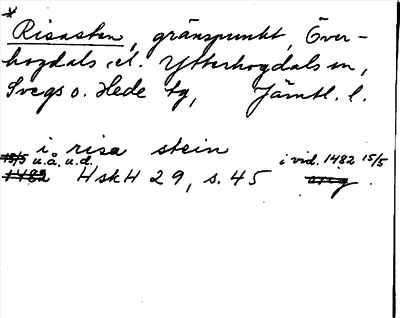 *
Risasten, gränspunkt, Över-
hogdals el. Ytterhogdals sn,
Svegs o. Hede tg, Jämtl. l.
i risa stein
15/5 u.å.u.d. i vid. 1482 15/5
1482 HskH 29, s. 45 orig.